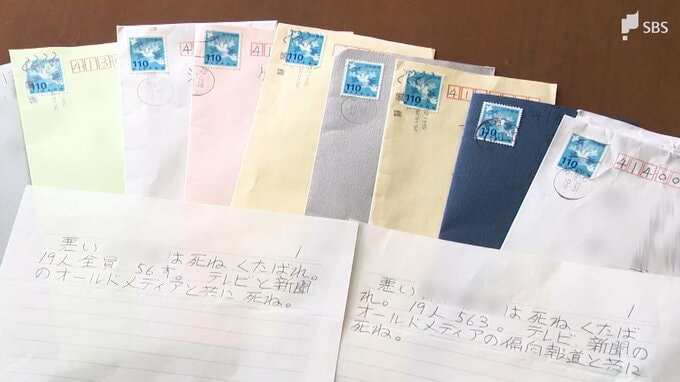 SBS
110
413
110
4
110
41
110
110
110
4
110
110
41400
悪い は死ね くたばれ。 1
19人全員 56す。 テレビと新聞
のオールドメディアと共に 死ね。
悪い は死ね くたば 1
れ。 19人 563。 テレビ、新聞の
オールドメディアの偏向報道と共に
死ね。